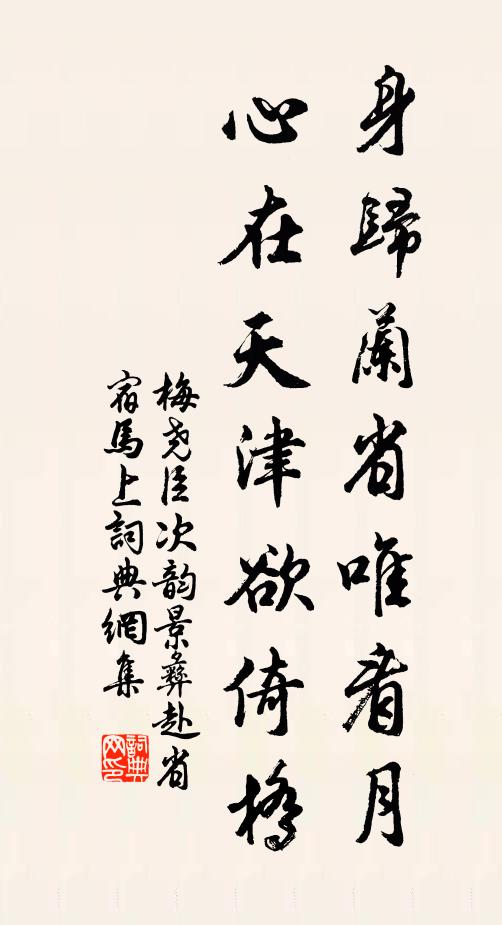 身歸蘭省唯看月
心在天津欲倚橋
梅堯臣次韵景彝赴省
宿馬上詞典網集
詞典网印